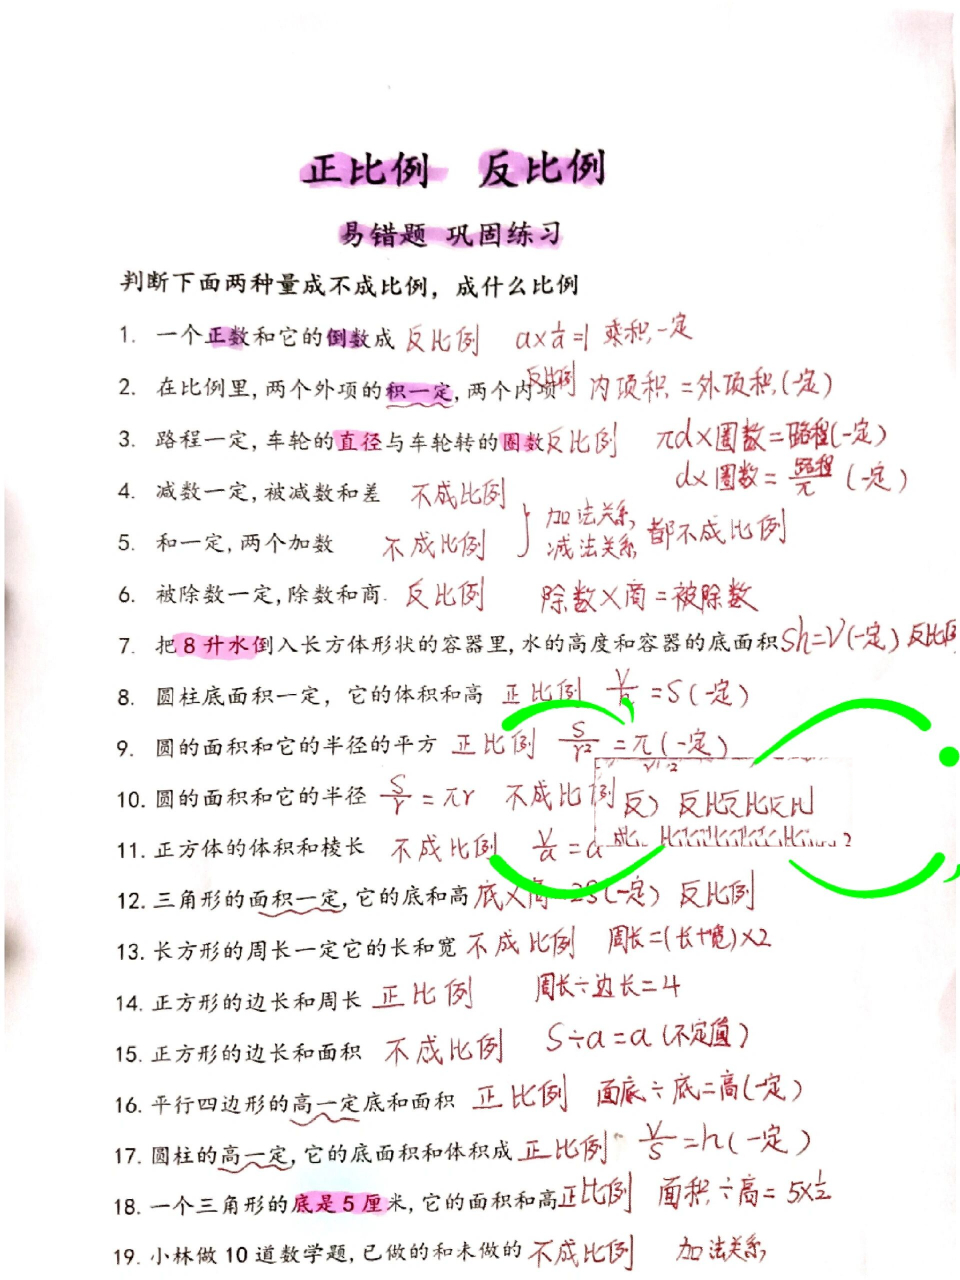 正比例 反比例
易错题 巩固练习
判断下面两种量成不成比例，成什么比例
1. 一个正数和它的倒数成 反比例 a×1/a=1 乘积一定
2. 在比例里,两个外项的积一定,两个内项 反比例 内项积=外项积(一定)
3. 路程一定,车轮的直径与车轮转的圈数 反比例 πd×圈数=路程(一定)
d×圈数=路程/π (一定)
4. 减数一定,被减数和差 不成比例
加法关系 减法关系 都不成比例
5. 和一定,两个加数 不成比例
6. 被除数一定,除数和商. 反比例 除数×商=被除数
7. 把8升水倒入长方体形状的容器里,水的高度和容器的底面积 Sh=V(一定) 反比例
8. 圆柱底面积一定，它的体积和高 正比例 V/h=S(一定)
9. 圆的面积和它的半径的平方 正比例 S/r²=π(一定)
10. 圆的面积和它的半径 S/r=πr 不成比例
11. 正方体的体积和棱长 不成比例 V/a=a
12. 三角形的面积一定,它的底和高 底×高=2S(一定) 反比例
13. 长方形的周长一定它的长和宽 不成比例 周长=(长+宽)×2
14. 正方形的边长和周长 正比例 周长÷边长=4
15. 正方形的边长和面积 不成比例 S÷a=a(不定值)
16. 平行四边形的高一定底和面积 正比例 面底÷底=高(一定)
17. 圆柱的高一定,它的底面积和体积成 正比例 V/S=h(一定)
18. 一个三角形的底是5厘米,它的面积和高 正比例 面积÷高=5×1/2
19. 小林做10道数学题,已做的和未做的 不成比例 加法关系